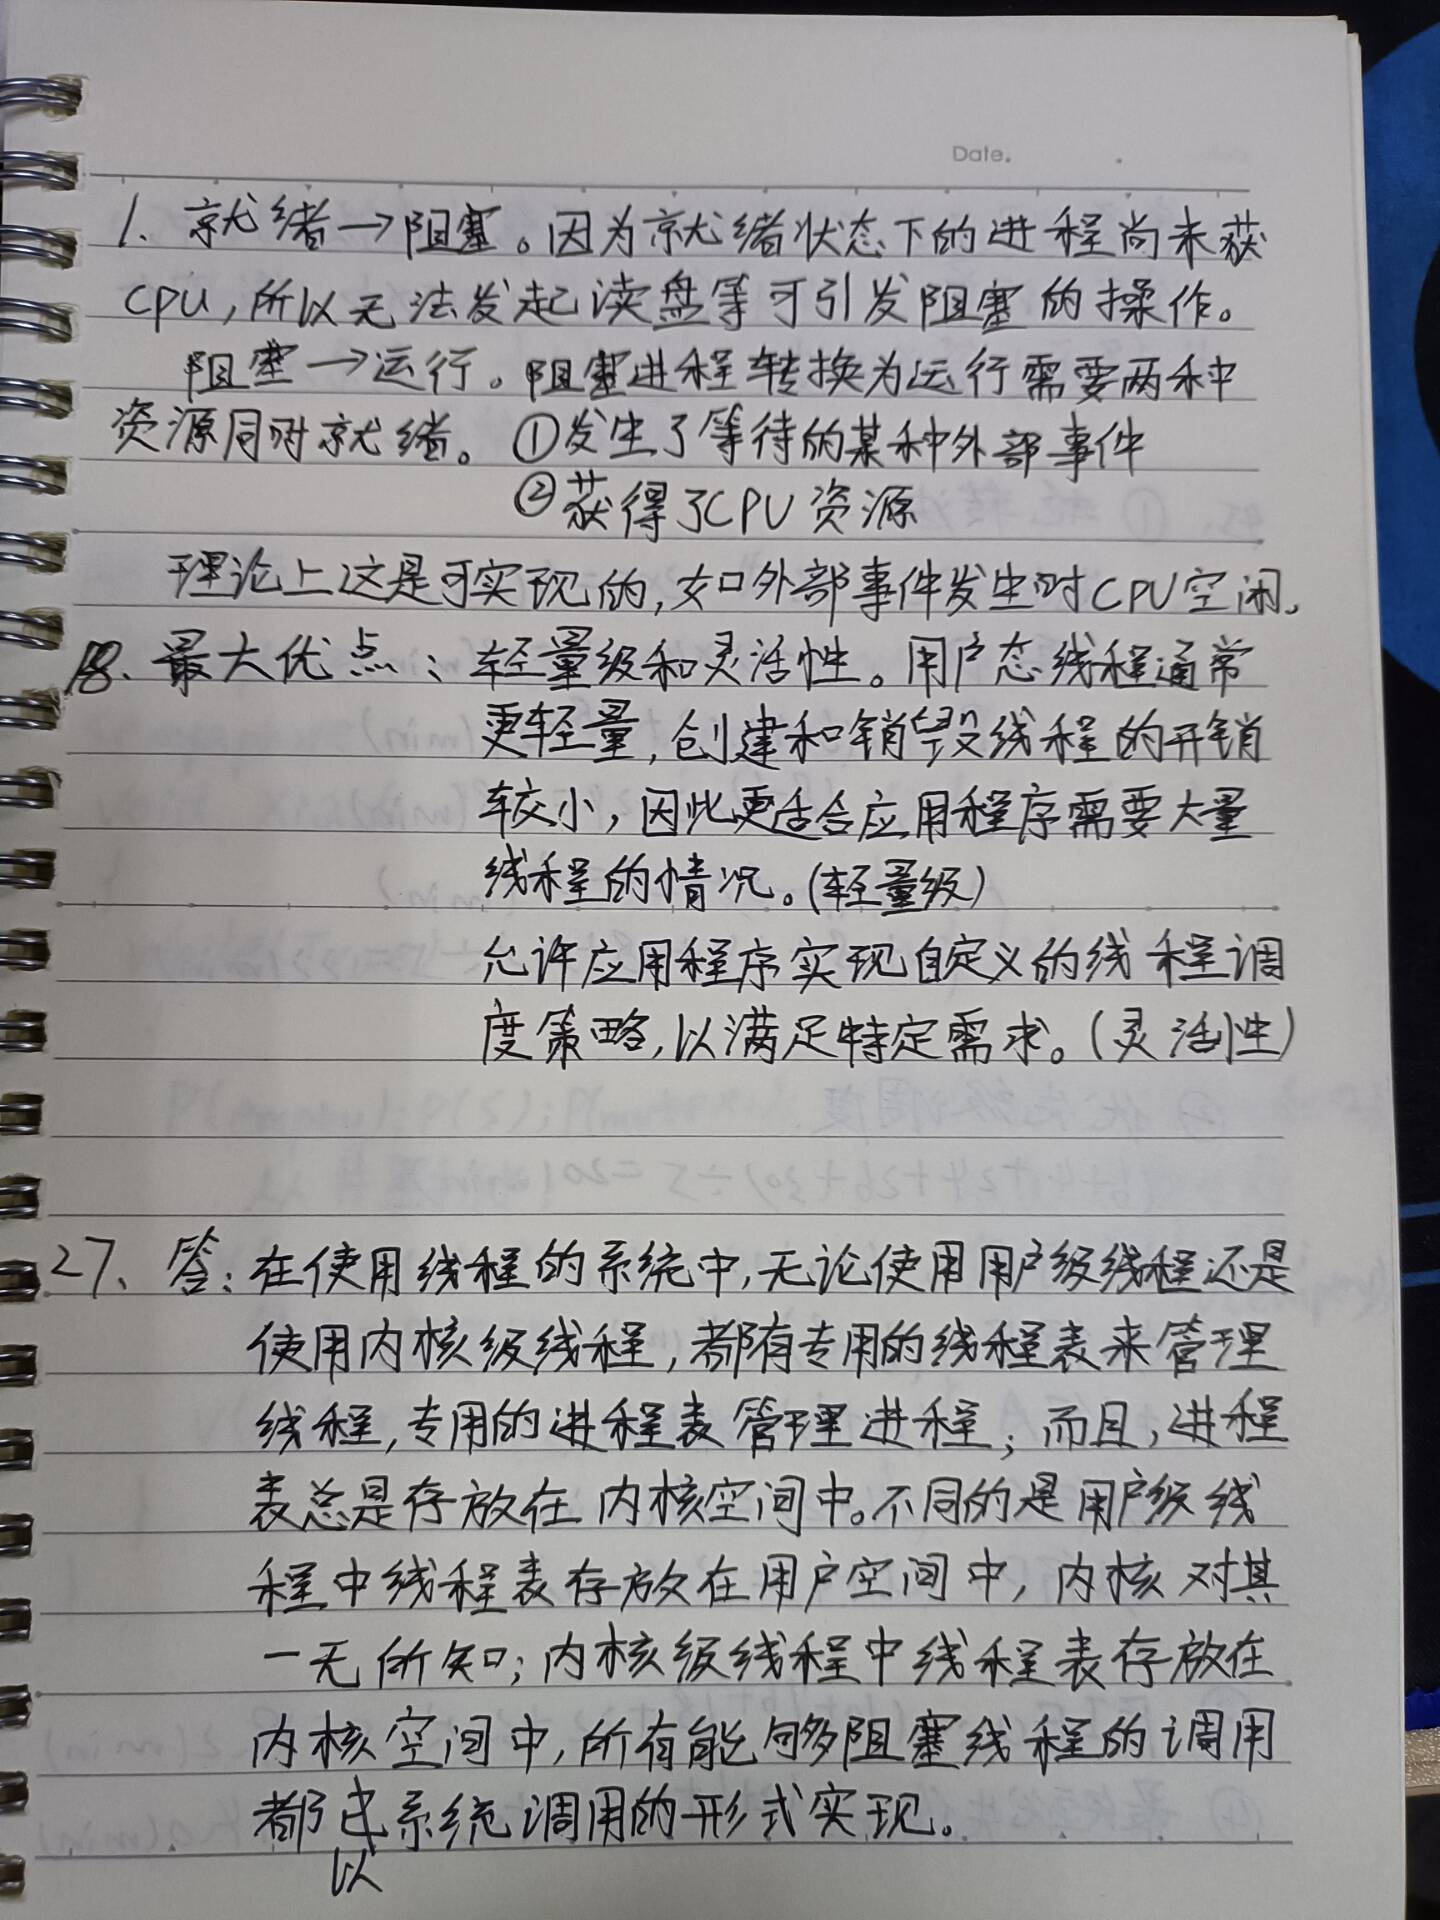 Date.
1. 就绪→阻塞。因为就绪状态下的进程尚未获
CPU,所以无法发起读盘等可引发阻塞的操作。
阻塞→运行。阻塞进程转换为运行需要两种
资源同时就绪。①发生了等待的某种外部事件
②获得了CPU资源
理论上这是可实现的,如外部事件发生时CPU空闲。
18. 最大优点:轻量级和灵活性。用户态线程通常
更轻量,创建和销毁线程的开销
较小,因此更适合应用程序需要大量
线程的情况。(轻量级)
允许应用程序实现自定义的线程调
度策略,以满足特定需求。(灵活性)
27、答:在使用线程的系统中,无论使用用户级线程还是
使用内核级线程,都有专用的线程表来管理
线程,专用的进程表管理进程;而且,进程
表总是存放在内核空间中。不同的是用户级线
程中线程表存放在用户空间中,内核对其
一无所知;内核级线程中线程表存放在
内核空间中,所有能够阻塞线程的调用
都以系统调用的形式实现。